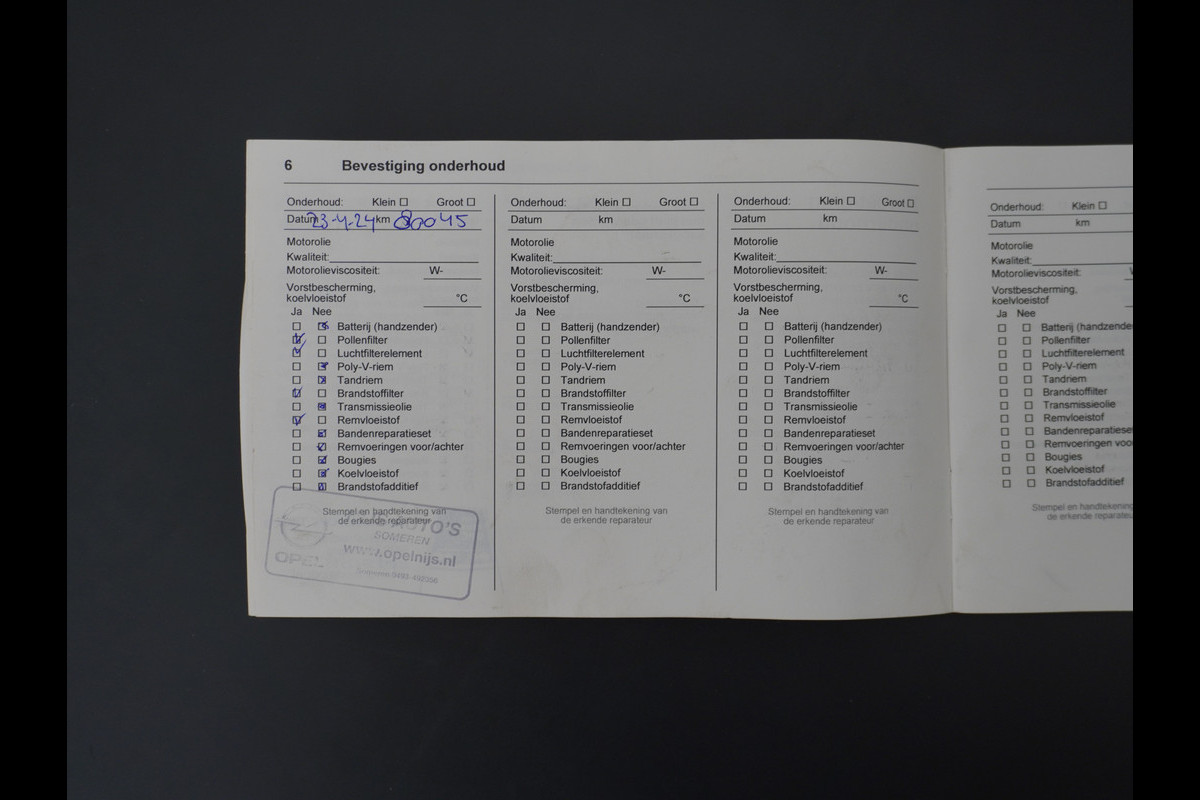 6 Bevestiging onderhoud
Onderhoud: Klein ☐ Groot ☐
Datum 23-4-24 km 80045
Motorolie
Kwaliteit:
Motorolieviscositeit: W-
Vorstbescherming,
koelvloeistof °C
Ja Nee
Batterij (handzender)
Pollenfilter
Luchtfilterelement
Poly-V-riem
Tandriem
Brandstoffilter
Transmissieolie
Remvloeistof
Bandenreparatieset
Remvoeringen voor/achter
Bougies
Koelvloeistof
Brandstofadditief
Stempel en handtekening van
de erkende reparateur
AUTO'S
SOMEREN
www.opelnijs.nl
OPEL
Onderhoud: Klein ☐ Groot ☐
Datum km
Motorolie
Kwaliteit:
Motorolieviscositeit: W-
Vorstbescherming,
koelvloeistof °C
Ja Nee
Batterij (handzender)
Pollenfilter
Luchtfilterelement
Poly-V-riem
Tandriem
Brandstoffilter
Transmissieolie
Remvloeistof
Bandenreparatieset
Remvoeringen voor/achter
Bougies
Koelvloeistof
Brandstofadditief
Stempel en handtekening van
de erkende reparateur
Onderhoud: Klein ☐ Groot ☐
Datum km
Motorolie
Kwaliteit:
Motorolieviscositeit: W-
Vorstbescherming,
koelvloeistof °C
Ja Nee
Batterij (handzender)
Pollenfilter
Luchtfilterelement
Poly-V-riem
Tandriem
Brandstoffilter
Transmissieolie
Remvloeistof
Bandenreparatieset
Remvoeringen voor/achter
Bougies
Koelvloeistof
Brandstofadditief
Stempel en handtekening van
de erkende reparateur
Onderhoud: Klein ☐
Datum km
Motorolie
Kwaliteit:
Motorolieviscositeit:
Vorstbescherming,
koelvloeistof
Ja Nee
Batterij (handzende
Pollenfilter
Luchtfilterelement
Poly-V-riem
Tandriem
Brandstoffilter
Transmissieolie
Remvloeistof
Bandenreparatieset
Remvoeringen voo
Bougies
Koelvloeistof
Brandstofadditief
Stempel en handtekening
de erkende reparateu